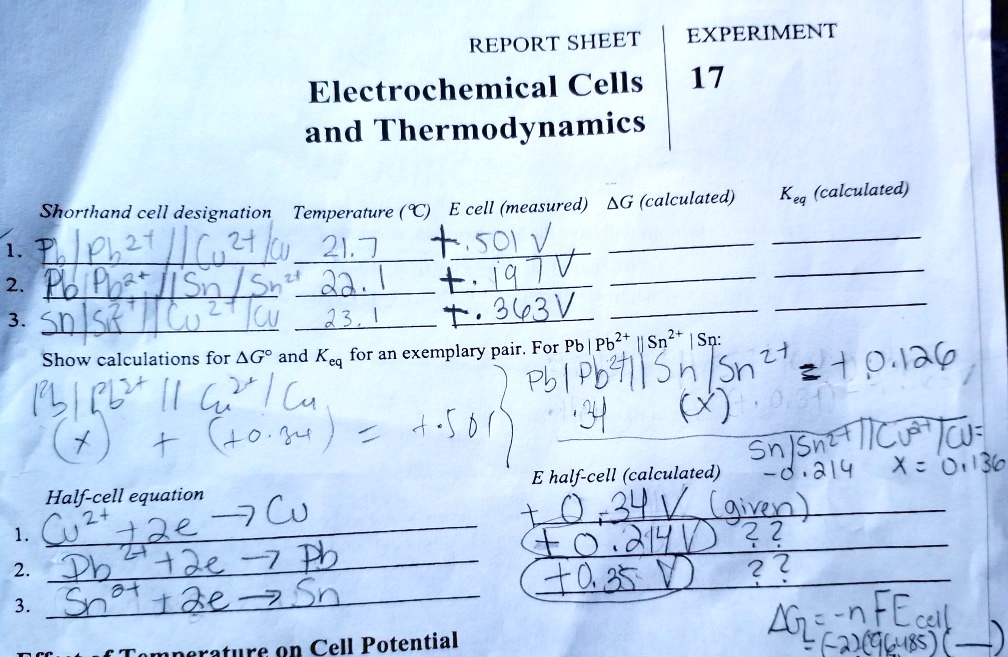 REPORT SHEET
EXPERIMENT
Electrochemical Cells
17
and Thermodynamics
Shorthand cell designation Temperature (°C) E cell (measured) ΔG (calculated) Keq (calculated)
1. Pb|Pb2+//Cu2+/Cu 21.7 +.501 V
2. Pb|Pb2+//Sn/Sn2+ 22.1 +.197 V
3. Sn/Sn2+//Cu2+/Cu 23.1 +.363V
Show calculations for ΔG° and Keq for an exemplary pair. For Pb | Pb2+ || Sn2+ | Sn:
Pb|Pb2+//Cu2+/Cu
(x) + (+0.34) = +.501
Pb|Pb2+//Sn/Sn2+ = +0.126
.34 (x)
Sn/Sn2+//Cu2+/Cu=
-0.214 x = 0.136
Half-cell equation E half-cell (calculated)
1. Cu2+ +2e → Cu +0.34 V (given)
2. Pb2+ +2e → Pb +0.214V ??
3. +2e → Sn +0.35 V ??
ΔG = -nFEcell
=(-2)(96485)(__)
of Temperature on Cell Potential